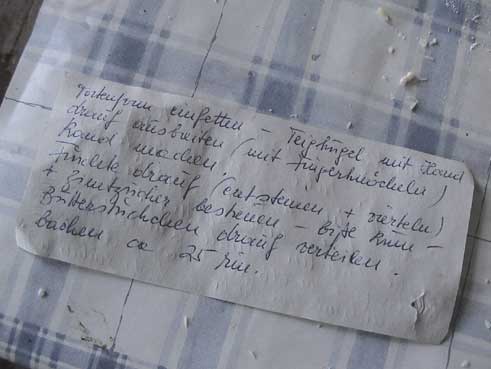 Tortenform einfetten - Teigkugel mit Hand
drauf ausbreiten (mit Fingerknöcheln)
Rand machen.
Früchte drauf (entsteinen + vierteln)
+ Zimtzucker bestreuen -
Butterstückchen drauf verteilen.
backen ca 25 Min.